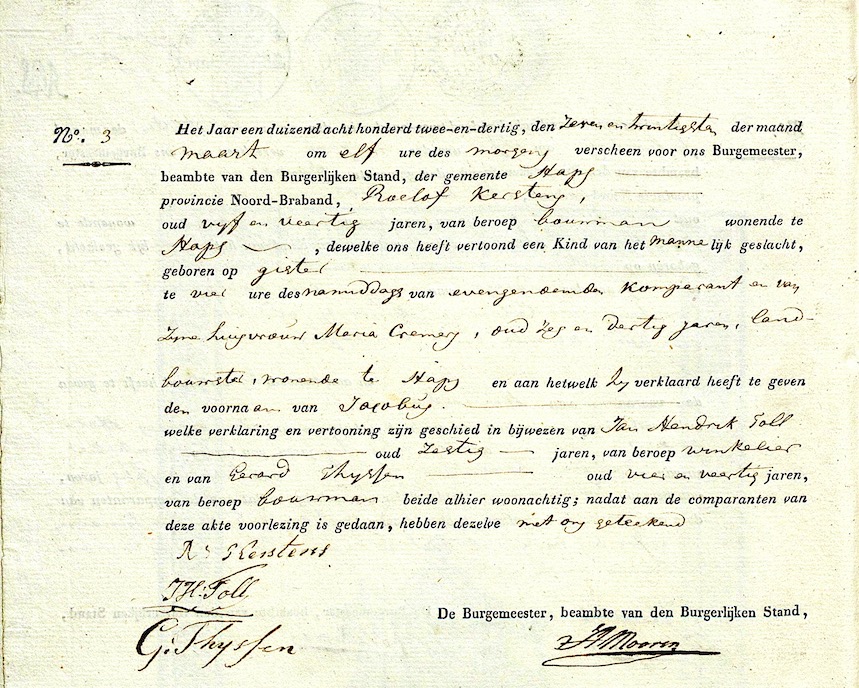 N.º 3
Het Jaar een duizend acht honderd twee-en-dertig, den Zeven en twintigsten der maand
maart om elf ure des morgens verscheen voor ons Burgemeester,
beambte van den Burgerlijken Stand, der gemeente Haps
provincie Noord-Braband, Roelof Kerstens,
oud vyf en veertig jaren, van beroep bouwman wonende te
Haps, dewelke ons heeft vertoond een Kind van het mannelijk geslacht,
geboren op gister
te vier ure des namiddags van evengenoemden komparant en van
zyne huisvrouw Maria Cremers, oud zes en dertig jaren, land-
bouwster, wonende te Haps en aan hetwelk hy verklaard heeft te geven
den voornaam van Jacobus.
welke verklaring en vertooning zijn geschied in bijwezen van Jan Hendrik Toll
oud zestig jaren, van beroep winkelier
en van Gerard Thyssen oud vier en veertig jaren,
van beroep bouwman beide alhier woonachtig; nadat aan de comparanten van
deze akte voorlezing is gedaan, hebben dezelve met ons geteekend
R. Kerstens
JH: Toll
G: Thyssen
De Burgemeester, beambte van den Burgerlijken Stand,